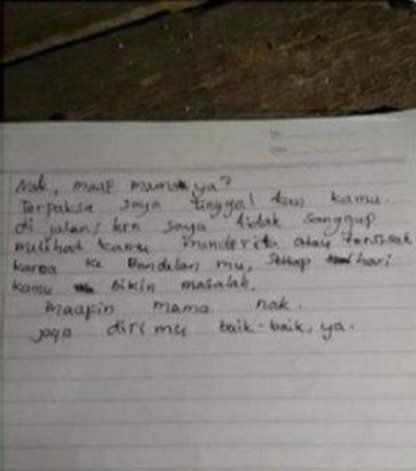 Nak, maaf mama ya?
Terpaksa saya tinggal kan kamu
di jalan, krn saya tidak sanggup
melihat kamu menderita atau tersiksa
karna ke Bandelan mu, setiap hari
kamu bikin masalah.
maafin mama nak.
jaga diri mu baik-baik, ya.